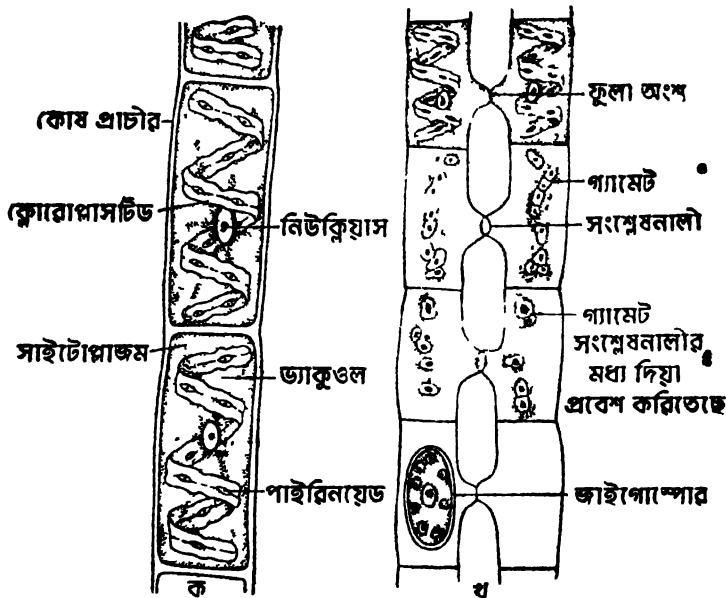 কোষ প্রাচীর
ক্লোরোপ্লাসটিড
নিউক্লিয়াস
সাইটোপ্লাজম
ভ্যাকুওল
পাইরিনয়েড
ক
ফুলা অংশ
গ্যামেট
সংশ্লেষনালী
গ্যামেট
সংশ্লেষনালীর
মধ্য দিয়া
প্রবেশ করিতেছে
জাইগোস্পোর
খ